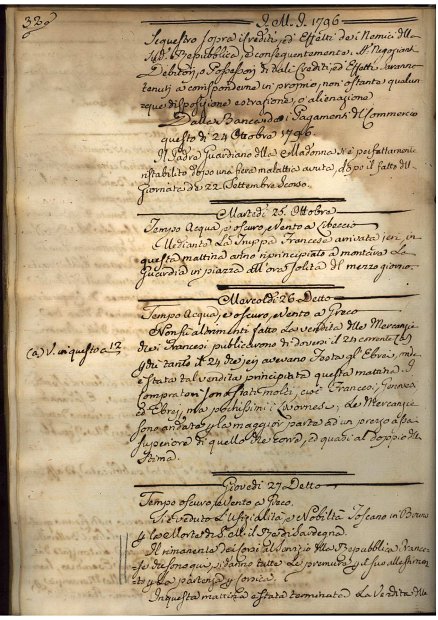 320
I.M.I. 1796
Sequestro sopra i crediti, ed Effetti dei Nemici della
Repubblica, e conseguentemente i Negozianti
Debitori, o Possessori di tali Crediti, ed Effetti saranno
tenuti a corrisponderne in proprio, non ostante qualun
que disposizione estrazione, o alienazione
Dalla Banca dei Pagamenti del Commercio
questo dì 24 Ottobre 1796.
Il Padre Guardiano della Madonna si è perfettamente
ristabilito dopo una fiera malattia avuta, dopo il fatto del
Giornate de 22 Settembre scorso.
Martedì 25. Ottobre
Tempo Acqua, e oscuro, e Vento a Libeccio
Mediante La Truppa Francese arrivata jeri, in
questa mattina anno riprincipiato a montare La
Guardia in piazza all'ora solita del mezzo giorno.
Mercoldì 26 Detto
Tempo Acqua, e oscuro, e Vento a Greco
Non fu altrimenti fatto La vendita delle Mercanzie
(a) V. in questo a 12
che i Francesi pubblicarono di doversi il 21 corrente (a)
24 che jeri avevano Festa gl' Ebrei, onde
è stata tal vendita principiata questa mattina. I
Compratori sono stati molti, cioè Francesi, Genovesi
ed Ebrei, ma pochissimi i Livornesi; Le Mercanzie
sono andate la maggior parte ad un prezzo assai
superiore di quello che corra, e quasi al doppio della
stima.
Giovedì 27. Detto
Tempo oscuro, e Vento a Greco.
Si è veduto L'Ufizialità, e Nobiltà Toscana in Bruno
p la Morte di S. M. il Re di Sardegna.
Il rimanente dei Corsi al servizio della Repubblica France
se che sono qua, si danno tutte Le premure p il suo allestimen
to p La partenza p Corsica.
In questa mattina è stata terminata La Vendita delle